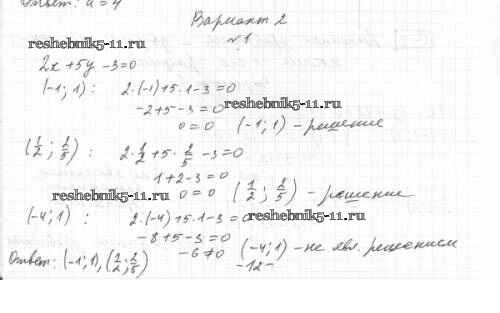 Ответ: a = 4
Вариант 2
№1
reshebnik5-11.ru
2x + 5y - 3 = 0
(-1; 1) : 2·(-1)+5·1-3=0
-2+5-3=0
reshebnik5-11.ru
0=0 (-1; 1) - решение
(1/2; 2/5) : 2·1/2+5·2/5-3=0
1+2-3=0
reshebnik5-11.ru
0=0 (1/2; 2/5) - решение
(-4; 1) : 2·(-4)+5·1-3=0
reshebnik5-11.ru
-8+5-3=0
-6≠0 (-4; 1) - не явл. решением
Ответ: (-1; 1), (1/2; 2/5)
-12-